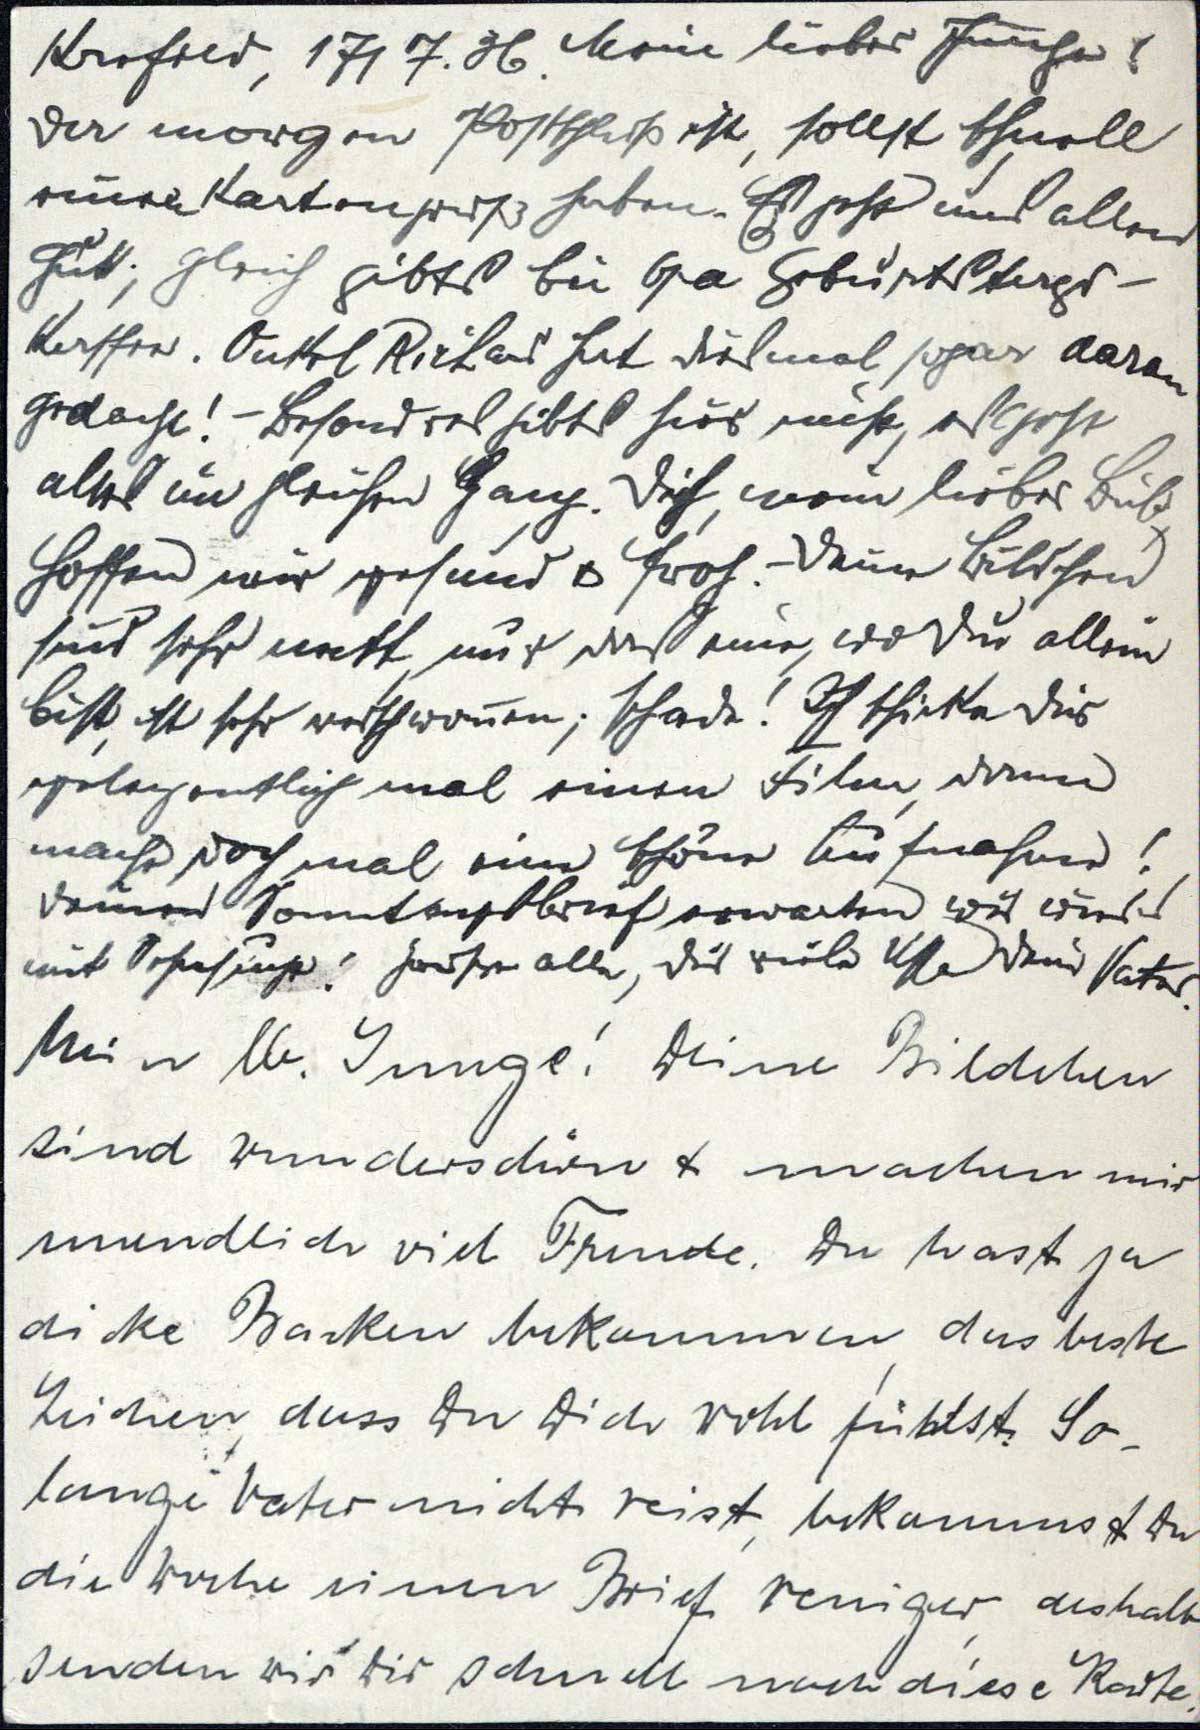 Krefeld, 17/7. 36. Mein lieber Junge!
Da morgen Postschluß ist, sollst schnell
einen Kartengruß haben. Es geht uns allen
gut; gleich gibts bei Oma Geburtstags-
kaffee. Onkel Richard hat diesmal sogar daran
gedacht! - Besonderes gibts hier nicht, es geht
alles im gleichen Gang. Dich, mein lieber Bub,
hoffen wir gesund & froh. - Deine Bildchen
sind sehr nett, nur das eine, wo Du allein
bist, ist sehr verschwommen; schade! Ich schicke Dir
gelegentlich mal einen Film, dann
mache doch mal eine schöne Aufnahme!
Deinen Sonntagsbrief erwarten wir wieder
mit Sehnsucht! Grüße alle, Dir viele Küsse Dein Vater.
Mein lb. Junge! Deine Bildchen
sind wunderschön & machen mir
unendlich viel Freude. Du hast ja
dicke Backen bekommen, das beste
Zeichen, dass Du Dich wohl fühlst. So-
lange Vater nicht reist, bekommst Du
die Woche einen Brief weniger, deshalb
senden wir Dir schnell noch diese Karte.